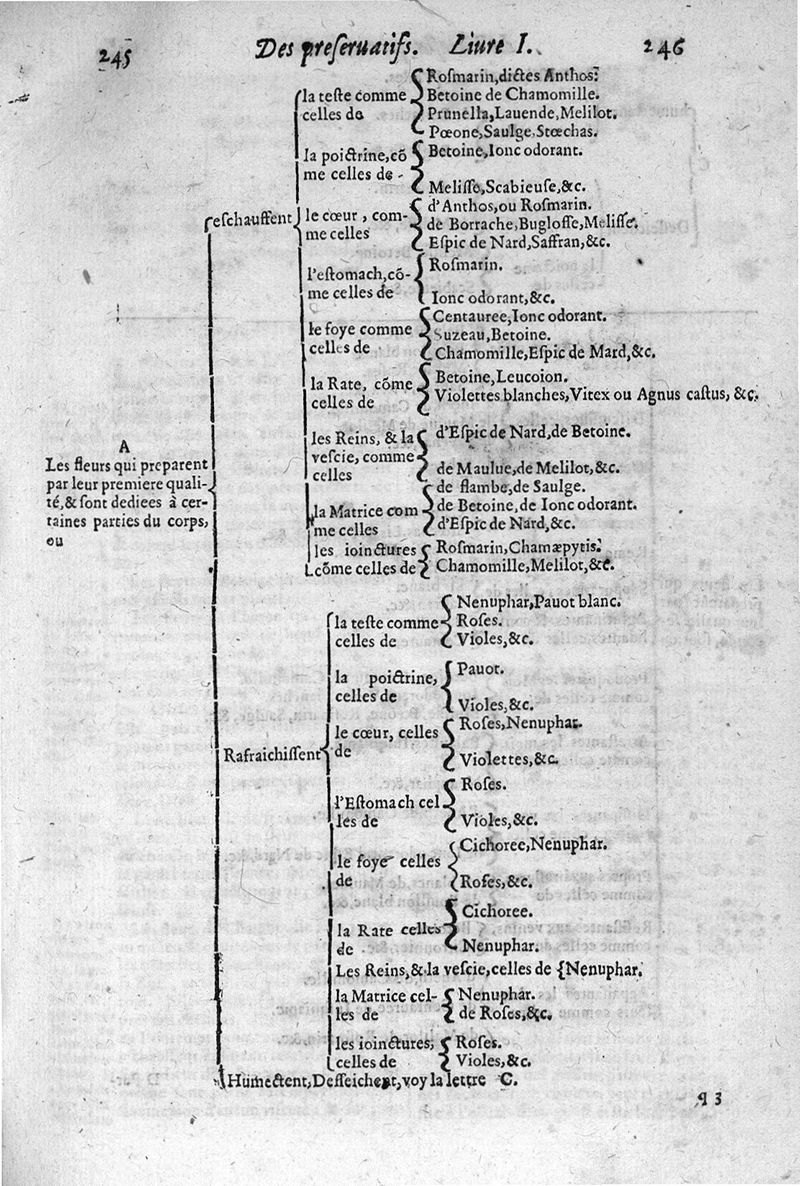 245 Des preſeruatifs. Liure I. 246
A
Les fleurs qui preparent
par leur premiere quali-
té, & ſont dediees à cer-
taines parties du corps,
ou
eſchauffent
la teſte comme
celles de
Roſmarin, dictes Anthos:
Betoine de Chamomille.
Prunella, Lauende, Melilot.
Pœone, Saulge, Stœchas.
la poictrine, cõ
me celles de -
Betoine, Ionc odorant.
Meliſſe, Scabieuſe, &c.
le cœur, com-
me celles
d'Anthos, ou Roſmarin.
de Borrache, Bugloſſe, Meliſſe.
Eſpic de Nard, Saffran, &c.
l'eſtomach, cõ-
me celles de
Roſmarin.
Ionc odorant, &c.
le foye comme
celles de
Centauree, Ionc odorant.
Suzeau, Betoine.
Chamomille, Eſpic de Mard, &c.
la Rate, cõme
celles de
Betoine, Leucoion.
Violettes blanches, Vitex ou Agnus caſtus, &c.
les Reins, & la
veſcie, comme
celles
d'Eſpic de Nard, de Betoine.
de Maulue, de Melilot, &c.
la Matrice com
me celles
de flambe, de Saulge.
de Betoine, de Ionc odorant.
d'Eſpic de Nard, &c.
les ioinctures
cõme celles de
Roſmarin, Chamæpytis.
Chamomille, Melilot, &c.
Rafraichiſſent
la teſte comme
celles de
Nenuphar, Pauot blanc.
Roſes.
Violes, &c.
la poictrine,
celles de
Pauot.
Violes, &c.
le cœur, celles
de
Roſes, Nenuphar.
Violettes, &c.
l'Eſtomach cel
les de
Roſes.
Violes, &c.
le foye celles
de
Cichoree, Nenuphar.
Roſes, &c.
la Rate celles
de
Cichoree.
Nenuphar.
Les Reins, & la veſcie, celles de {Nenuphar.
la Matrice cel-
les de
Nenuphar.
de Roſes, &c.
les ioinctures,
celles de
Roſes.
Violes, &c.
Humectent, Deſſeichent, voy la lettre C.
q 3